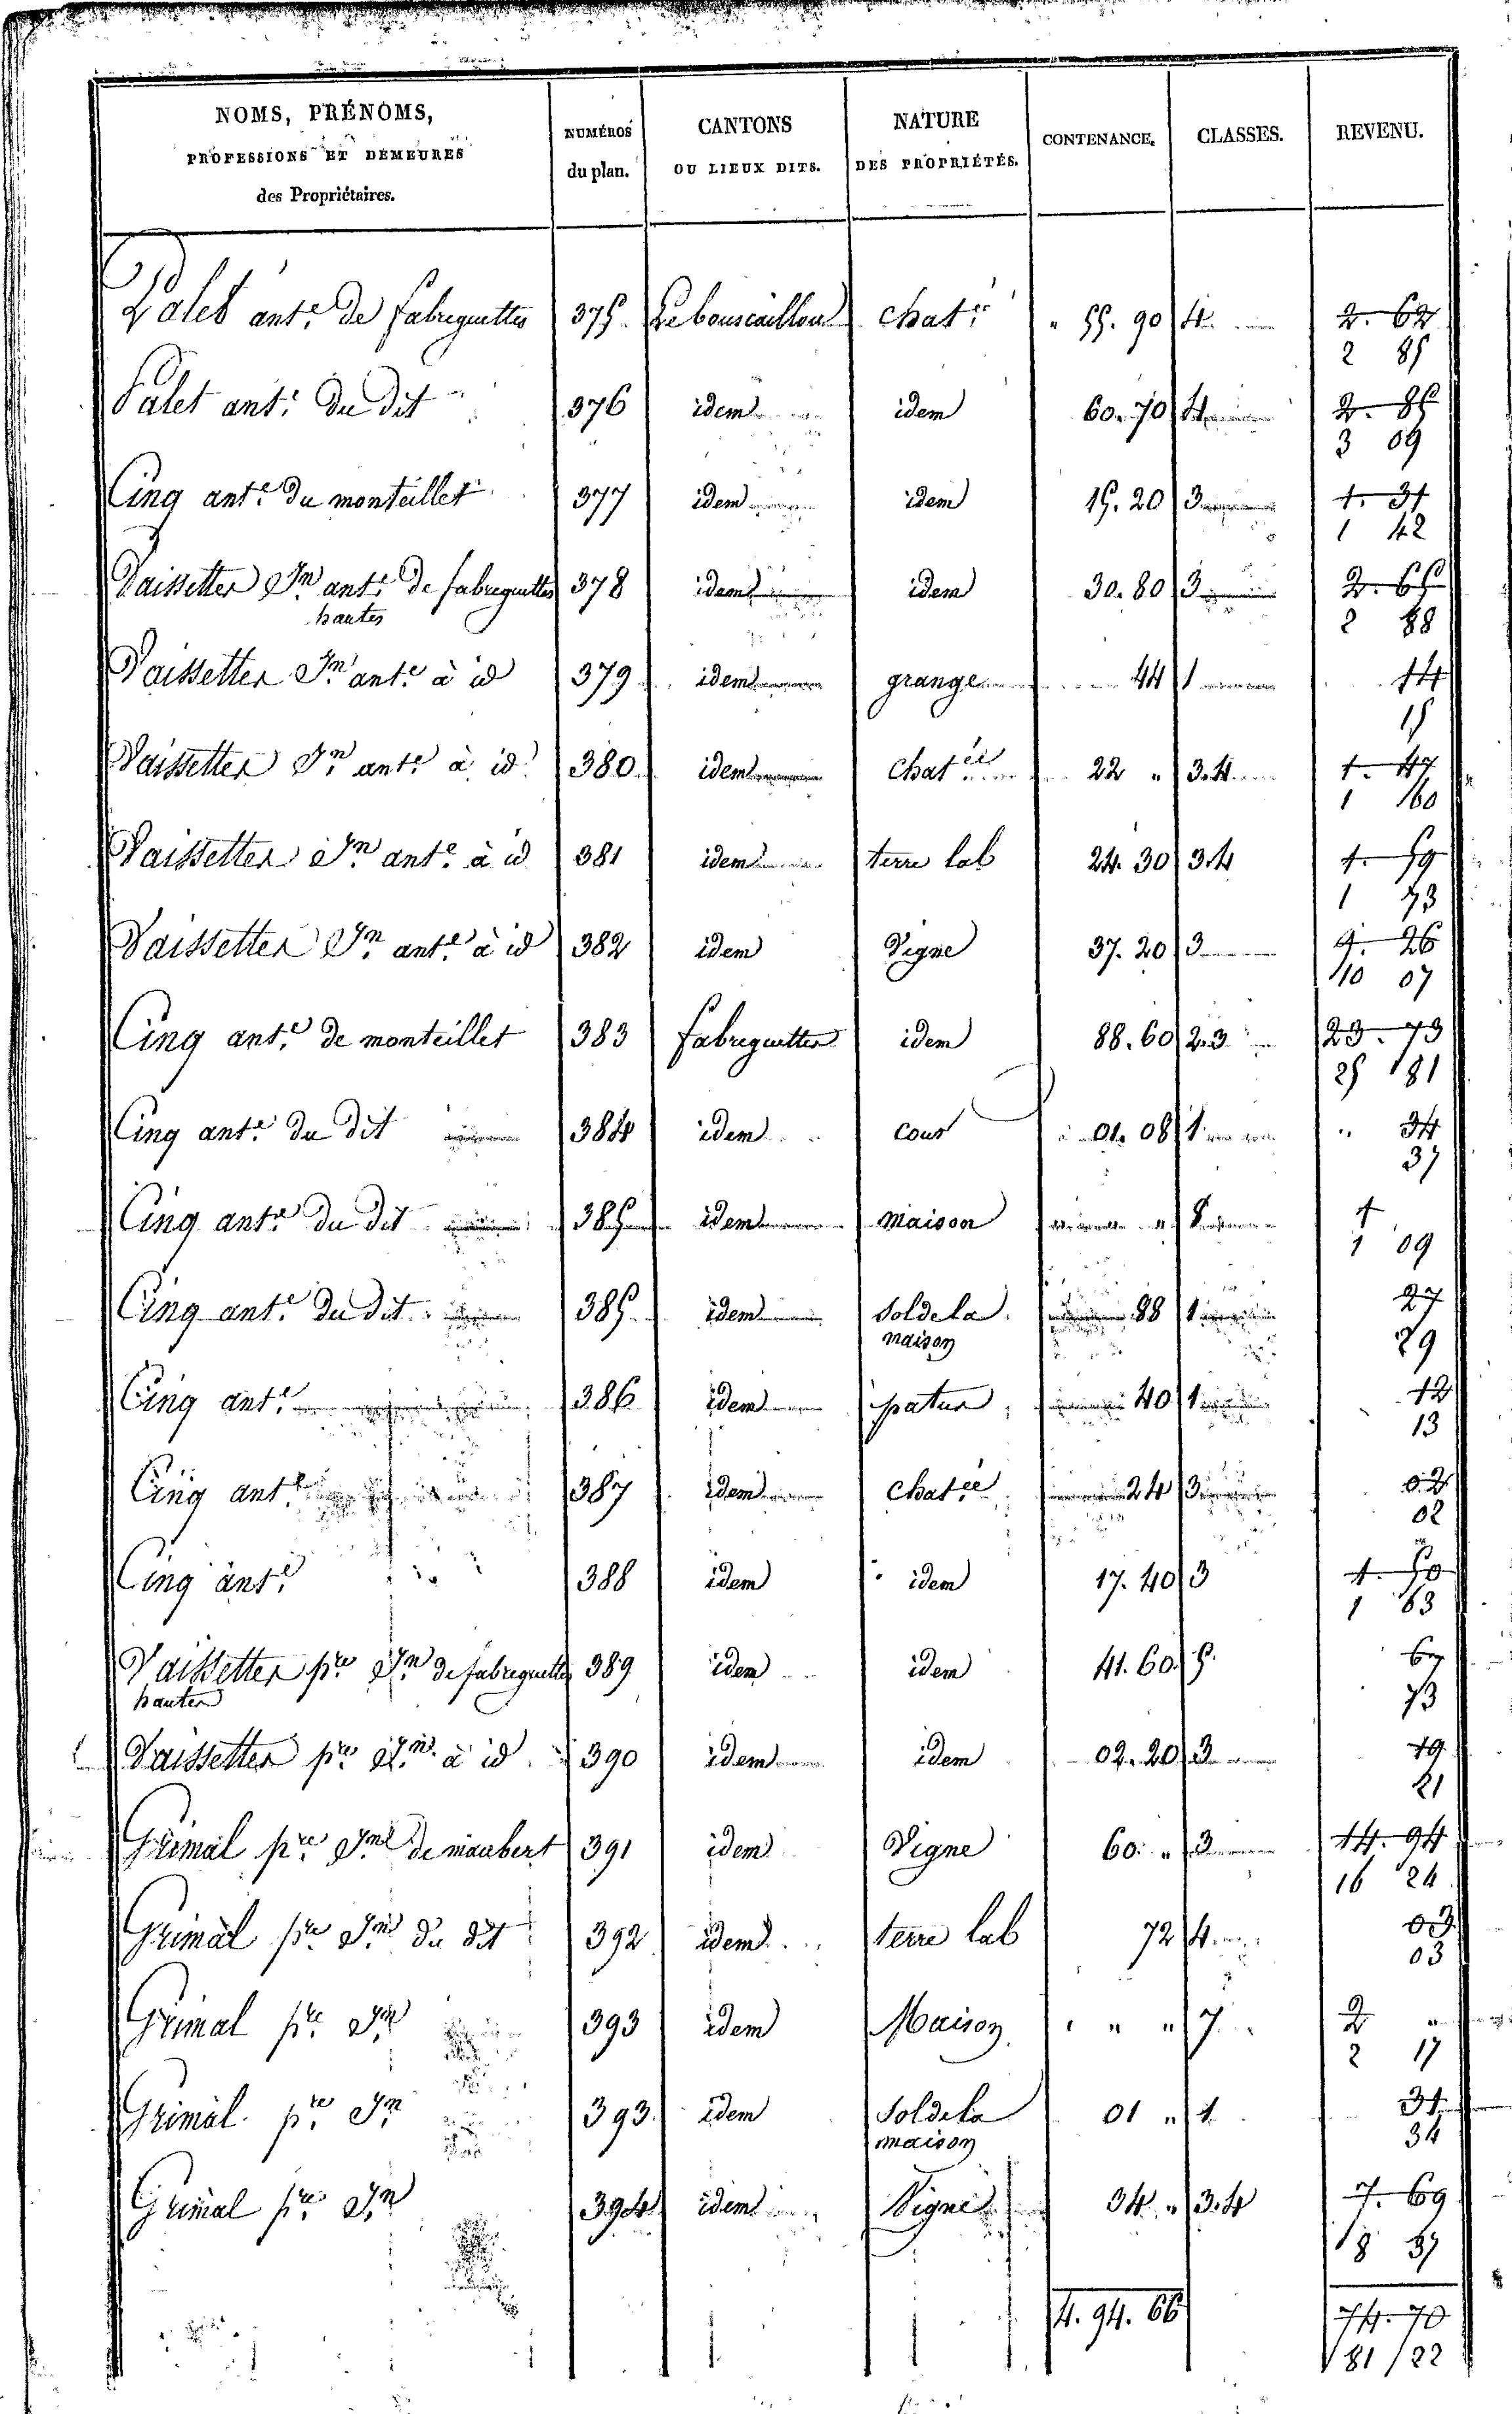 NOMS, PRÉNOMS, PROFESSIONS ET DEMEURES des Propriétaires. NUMÉROS du plan. CANTONS OU LIEUX DITS. NATURE DES PROPRIÉTÉS. CONTENANCE. CLASSES. REVENU.
Palet ant.e de fabreguettes 375. Le bouscaillou chat.ée " 55. 90 4. 2. 62
2 85
Palet ant.e du dit 376 idem idem 60. 70 4 2. 85
3 09
Cinq ant.e du monteillet 377 idem idem 15. 20 3 1. 31
1 42
Vaissettes Jn ant.e de fabreguettes 378 idem idem 30. 80 3 2. 65
hautes 2 88
Vaissettes Jn ant.e à id 379 idem grange 44 1 14
15
Vaissettes Jn ant.e à id 380. idem chat.ée 22 " 3.4 1. 47
1 60
Vaissettes Jn ant.e à id 381 idem terre lab 24. 30 3.4 1. 59
1 73
Vaissettes Jn ant.e à id 382 idem Vigne 37. 20 3 9. 26
10 07
Cinq ant.e de monteillet 383 fabreguettes idem 88. 60 2.3 23. 73
25 81
Cinq ant.e du dit 384 idem cour 01. 08 1 " 34
37
Cinq ant.e du dit 385 idem maison " 8 1
1 09
Cinq ant.e du dit 385. idem sol de la 88 1 27
maison 29
Cinq ant.e 386 idem patus 40 1 12
13
Cinq ant.e 387 idem chat.ée 24 3 02
02
Cinq ant.e 388 idem idem 17. 40 3 1. 50
1 63
Vaissettes p.re Jn de fabreguettes 389 idem idem 41. 60. 5. 67
hautes 73
Vaissettes p.re Jn à id 390 idem idem 02. 20 3 19
21
Grimal p.re Jn de maubert 391 idem Vigne 60. " 3 14. 94
16 24
Grimal p.re Jn du dit 392 idem terre lab 72 4 03
03
Grimal p.re Jn 393 idem Maison " " 7 2 "
2 17
Grimal p.re Jn 393. idem sol de la 01 " 1 31
maison 34
Grimal p.re Jn 394 idem Vigne 34 " 3.4 7. 69
8 37
4. 94. 66 74. 70
81 / 22